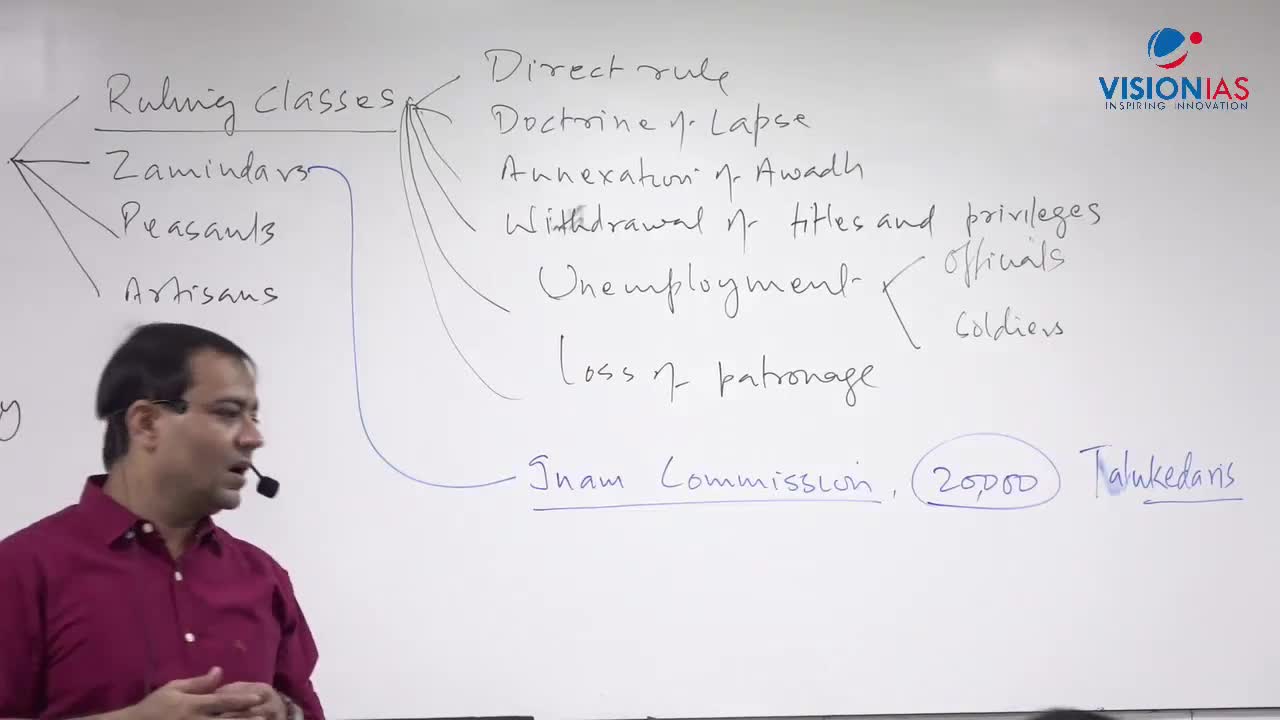 VISIONIAS
INSPIRING INNOVATION
Ruling Classes
Zamindars
Peasants
Artisans
Direct rule
Doctrine of Lapse
Annexation of Awadh
Withdrawal of titles and privileges
Unemployment
Officials
Soldiers
Loss of patronage
Inam Commission, 20,000 Talukedaris